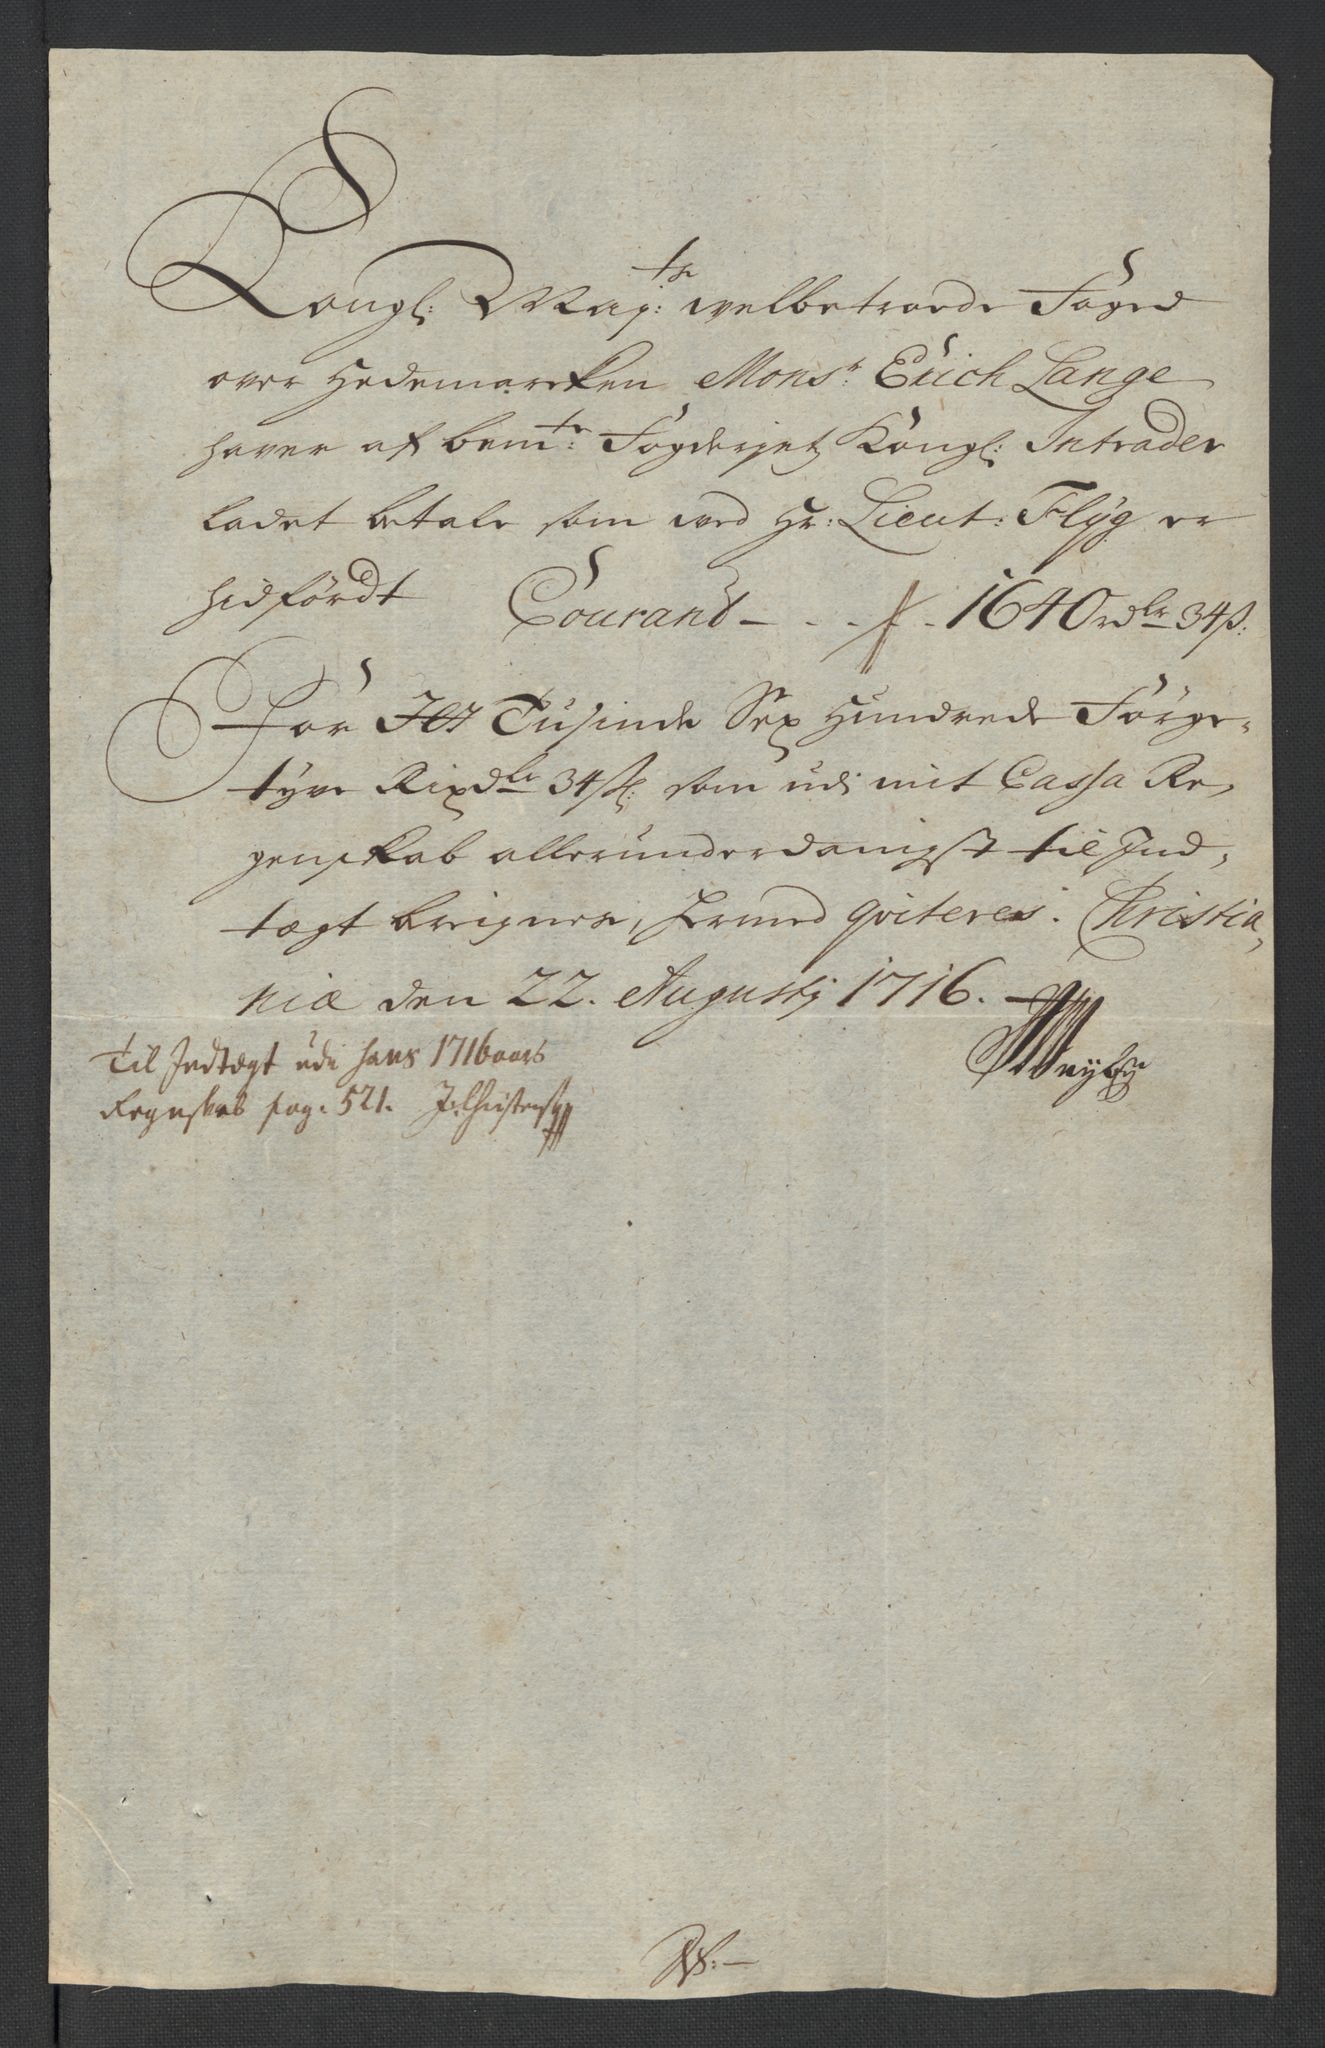 Kongl: Maj:ts welbetroede Foged
over Hedemarcken Monsr: Erich Lange
haver af bemte: Fogderjet Kongl: Intrader
ladet betale som ved Hr: Lieut: Flyg er
hidfördt Courant - . . . - 1640 rdlr 34 ß:
For Jet Tusinde Sex Hundrede Förge-
tyve Rixdlr 34 ß: som udi mit Cassa Re,
genskab allerunderdanigst til Ind,
tægt beregnes, hermed qviteres. Christia,
niæ den 22. Augustij 1716.
Til Indtægt udi hans 1716 aars
Regnskab pag. 521.